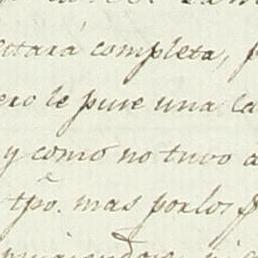 ettará completa, p
ero le puse una la
y como no tuvo a
tpõ. mas por los p